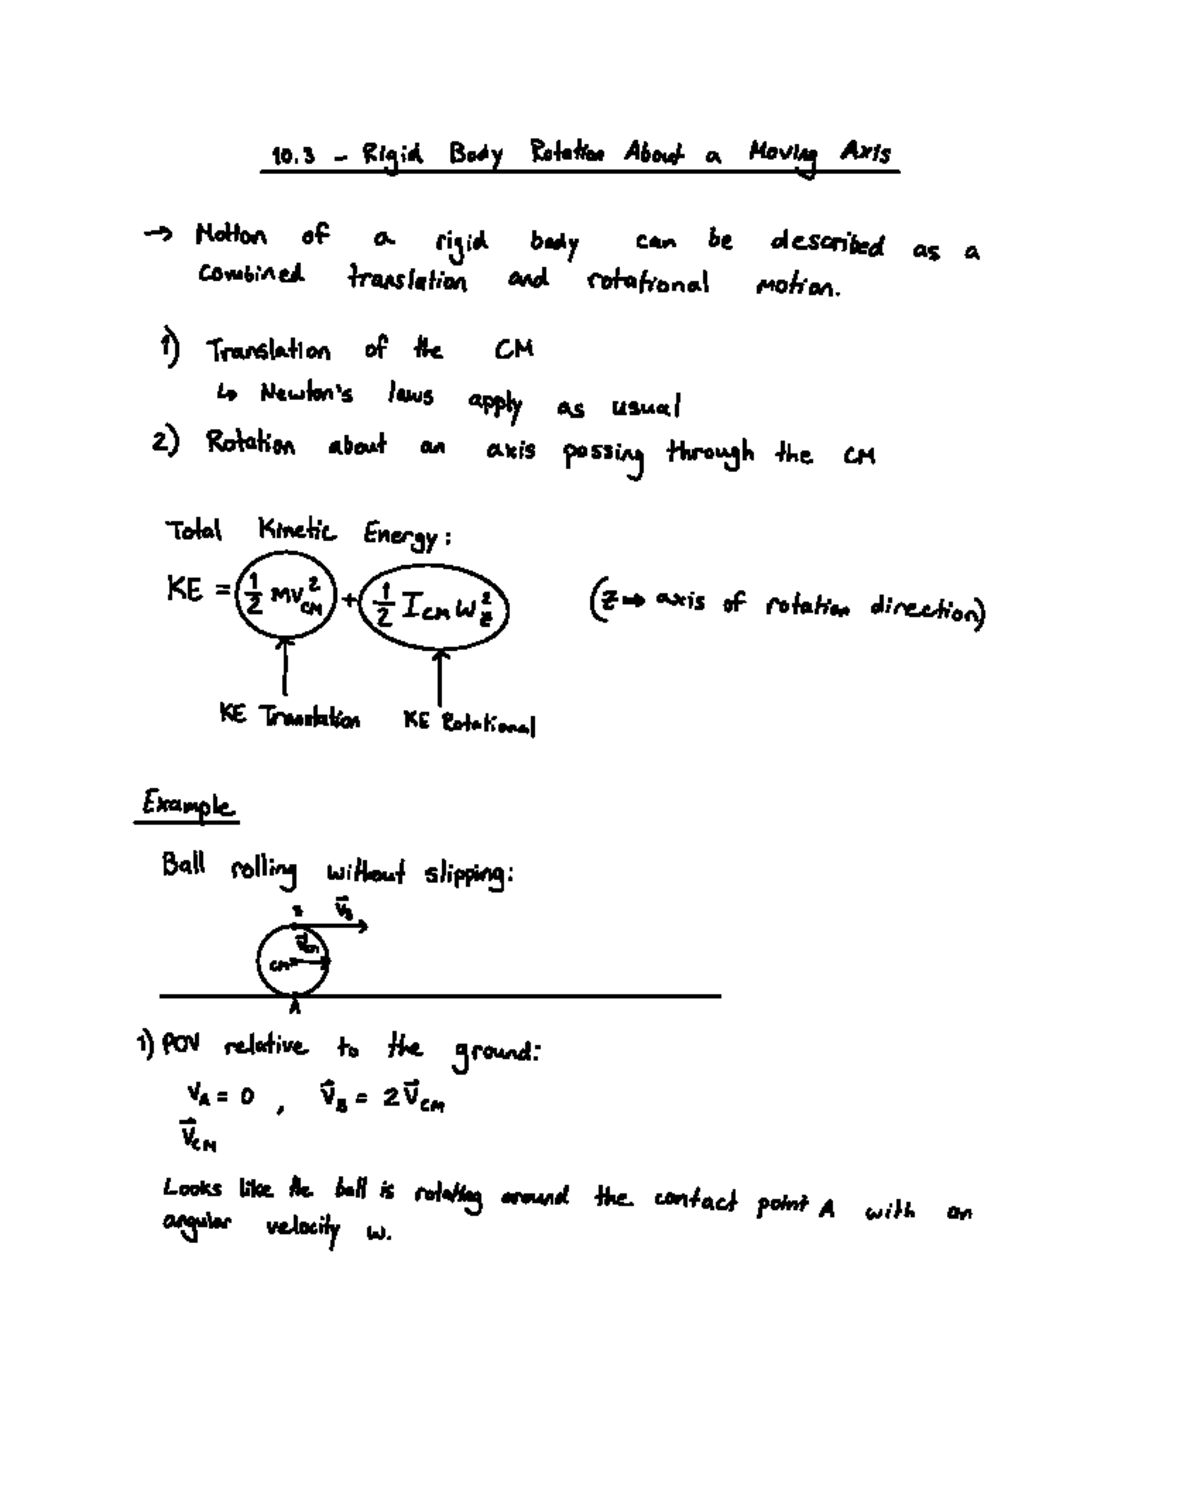 10.3 - Rigid Body Rotation About a Moving Axis
→ Motion of a rigid body can be described as a
combined translation and rotational motion.
1) Translation of the CM
↳ Newton's laws apply as usual
2) Rotation about an axis passing through the CM
Total Kinetic Energy:
KE = 1/2 MV²CM + 1/2 ICM W²z (z → axis of rotation direction)
KE Translation KE Rotational
Example
Ball rolling without slipping:
B V⃗B
V⃗CM
CM
A
1) POV relative to the ground:
VA = 0 , V⃗B = 2V⃗CM
V⃗CM
Looks like the ball is rotating around the contact point A with an
angular velocity w.